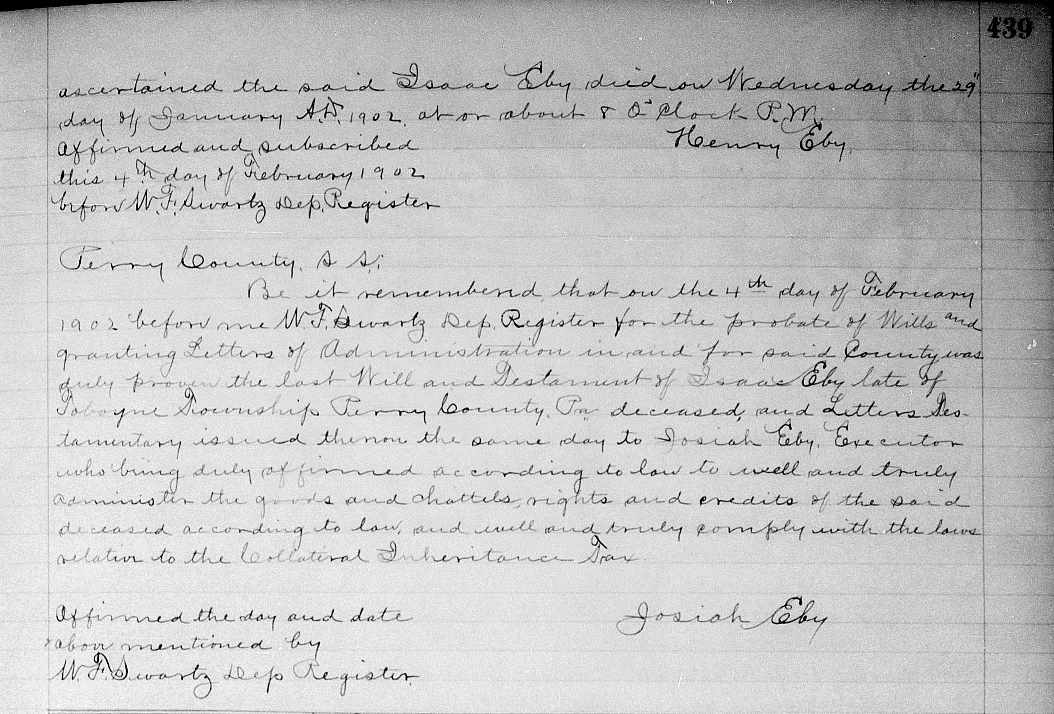 439
ascertained the said Isaac Eby died on Wednesday the 29"
day of January A.D. 1902. at or about 8 O'Clock P.M.
Affirmed and subscribed Henry Eby.
this 4th day of February 1902
before W. F. Swartz Dep. Register
Perry County. S S:
Be it remembered, that on the 4th day of February
1902 before me W. F. Swartz Dep. Register for the probate of Wills and
granting Letters of Administration in and for said County was
duly proven the last Will and Testament of Isaac Eby late of
Toboyne Township Perry County, Pa deceased, and Letters Tes-
tamentary issued thereon the same day to Josiah Eby, Executor
who being duly affirmed according to law to well and truly
administer the goods and chattels, rights and credits of the said
deceased according to law, and well and truly comply with the laws
relative to the Collateral Inheritance Tax
Affirmed the day and date Josiah Eby
above mentioned by
W. F. Swartz Dep Register.